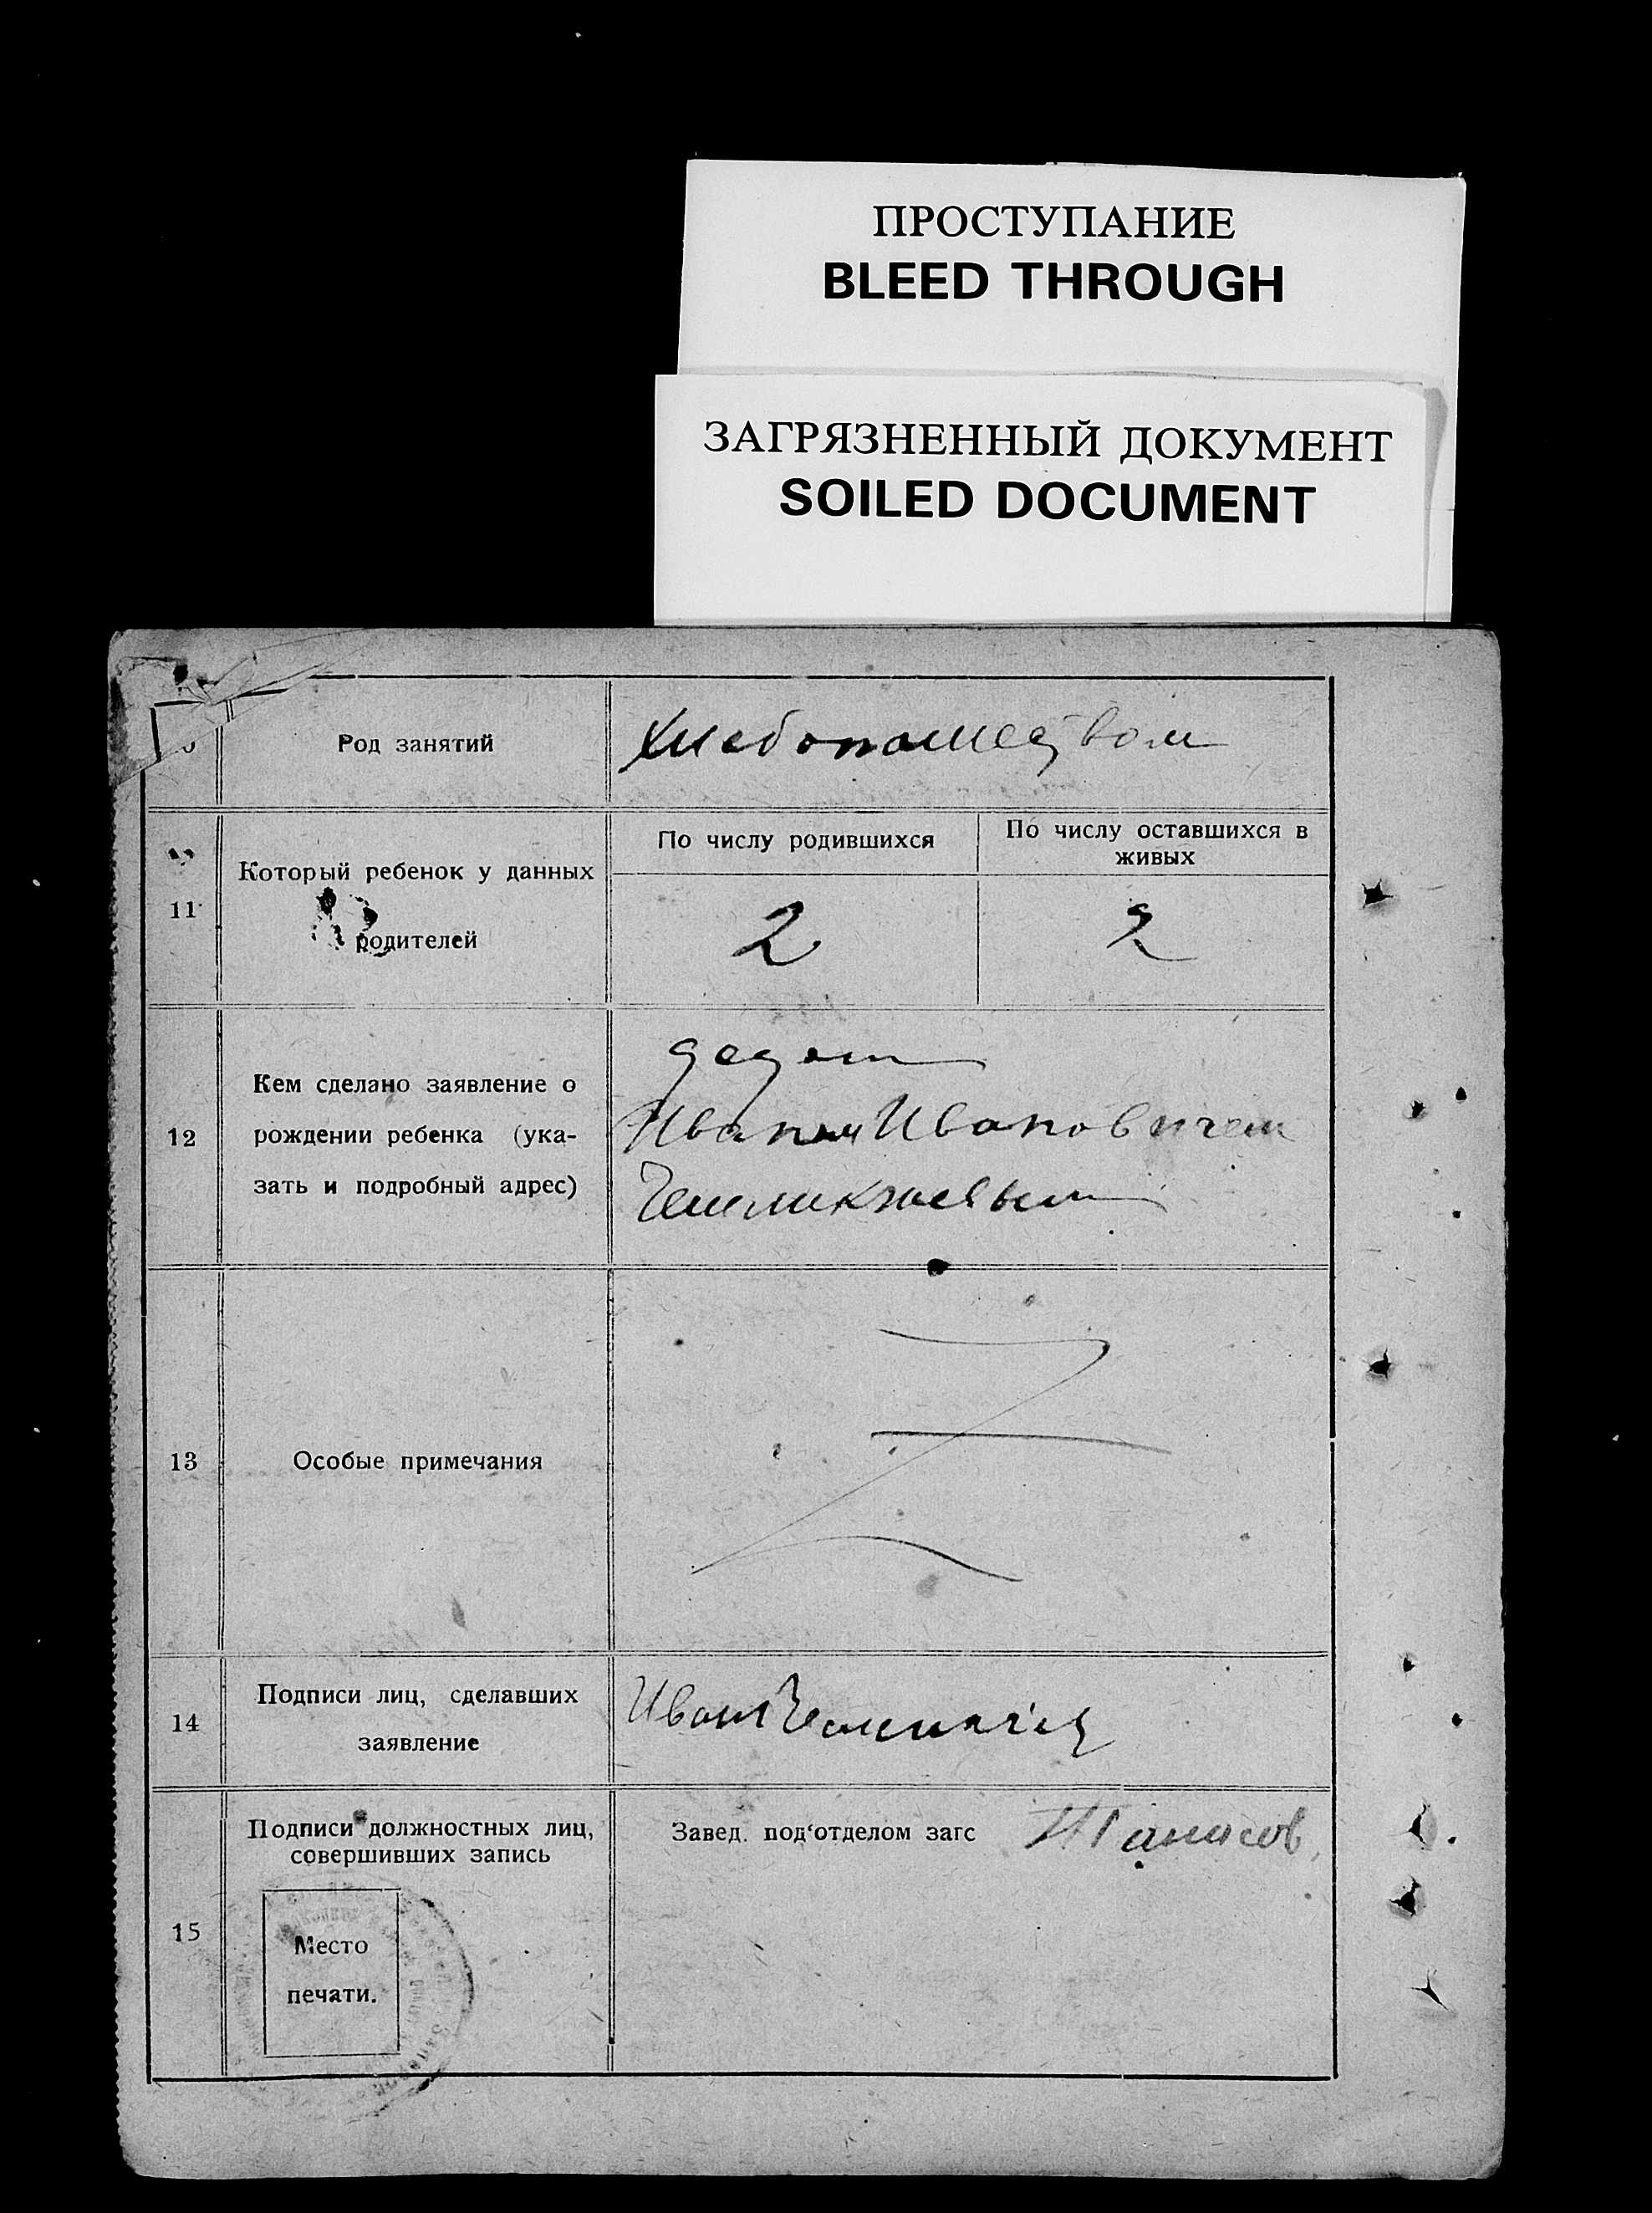 ПРОСТУПАНИЕ
BLEED THROUGH
ЗАГРЯЗНЕННЫЙ ДОКУМЕНТ
SOILED DOCUMENT
Род занятий
Хлебопашеством
11
Который ребенок у данных
родителей
По числу родившихся
По числу оставшихся в
живых
2
2
12
Кем сделано заявление о
рождении ребенка (ука-
зать и подробный адрес)
дедом
Иваном Ивановичем
13
Особые примечания
14
Подписи лиц, сделавших
заявление
Иван
15
Подписи должностных лиц,
совершивших запись
Место
печати.
Завед. под'отделом загс